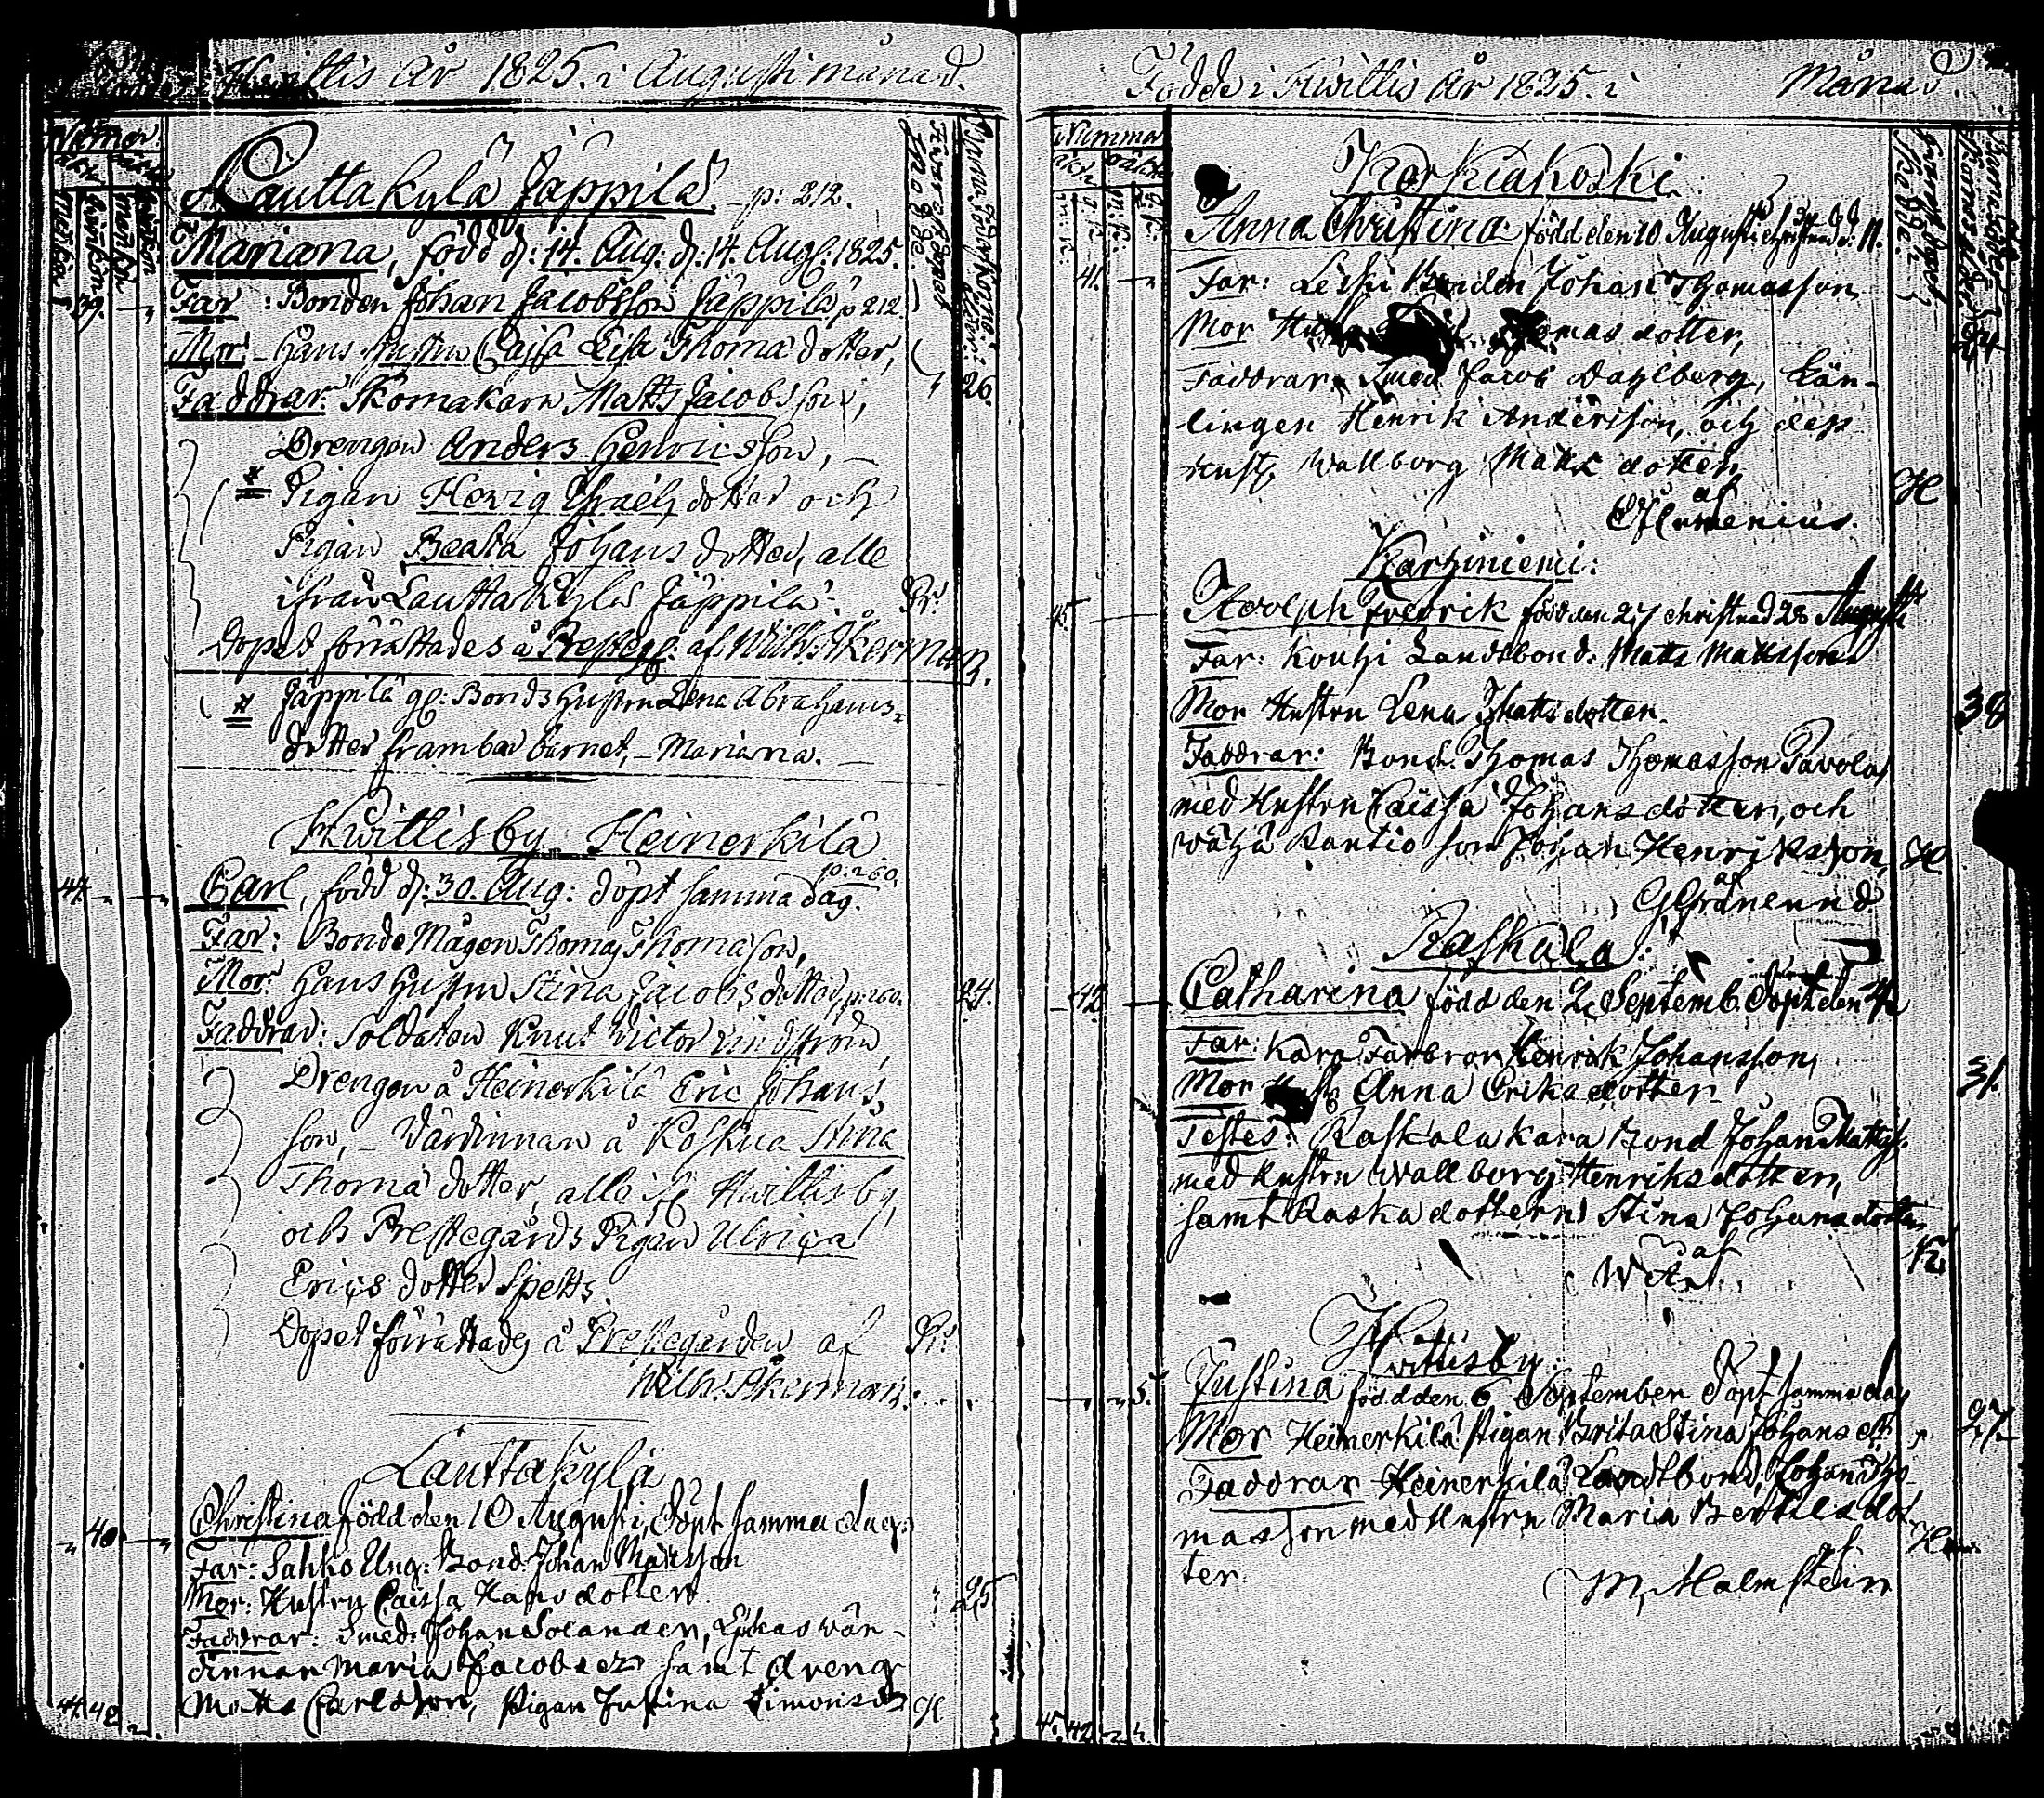 Hvittis År 1825. i Augusti månad.
Numer
Lauttakylä Jäppilä. - p: 212.
Mariana, född d: 14. Aug. d. 14. Aug. 1825.
39.
Far: Bonden Johan Jacobsson Jäppilä p 212.
Mor: Hans Hustru Caisa Lisa Thomä dotter,
26.
Faddrar: Skomakarn Matts Jacobsson,
Drengen Anders Henricsson,
* Pigan Hevig Israels dotter och
Pigan Beata Johans dotter, alle
ifrån Lauttakylä Jäppilä. Pr.
Dopet förrättades å Presteg: af Wilh. Åkerman.
* Jäppilä gl. Bonds Hustru Lena Abrahams=
dotter frambar barnet, - Mariana. -
Hwittisby Heinerkilä
p. 260.
44. Carl, född d: 30. Aug: döpt samma dag.
Far: Bonde Mågen Thomas Thomasson,
Mor: Hans Hustru Stina Jacobs dotter, p. 260. 24.
Faddrar: Soldaten Knut Victor Lindström
Drengen å Heinerkilä Eric Johans
son, - Värdinnan å Koskua Stina
Thomä dotter, alle Hwittisby,
och Prestegårds Pigan Ulrica
Erics dotter Spetts.
Dopet förrättades å Prestegården af Pr.
Wilh. Åkerman.
Lauttakylä
40. Christina född den 10 Augusti, döpt samma dag:
Far: Sahko Ung: Bond. Johan Mattsson
Mor: Hustru Caisa Hans dotter. 25
Faddrar: Smed. Johan Solander, wär-
dinnan Maria Jacobs dr samt dreng
Matts Carlsson, Pigan Justina Simons dr H
44. 42.
Födde i Hwittis År 1825. i Månad.
Nummer
Korkiakoski.
Anna Christina född den 10 Augusti christnad d. 11.
41. Far: Bonden Johan Thomasson
34
Mor mas dotter,
Faddrar. Smed. Jacob Dahlberg, Län-
lingen Henrik Andersson, och dess
hust. Wallborg Matts dotter H
af
Karhiniemi:
45. Adolph Fredrik född den 27 christnad 28 Augusti
Far: Kouhi Landtbond. Matts Mattsson
Mor Hustru Lena Matts dotter. 38
Faddrar: Bond. Thomas Thomasson Pavola,
med Hustru Caissa Johans dotter, och
wähä Rantio son Johan Henriksson, H
af
G Granlund.
Raskala:
42 Catharina född den 2 Septemb. döpt den 4
Far: Kara Farbror Henrik Johansson,
Mor Anna Eriks dotter 31.
Testes: Raskala Kara Bond Johan Matts.
med hustru Wallborg Henriks dotter,
samt Raska dottern Stina Johans dotter
af
W Å.
Hvittisby:
5. Justina född den 6 September döpt samma dag
Mor Heinerkilä Pigan Brita Stina Johans dt 27.
Faddrar Heinerkilä Landtbond. Johan Tho
masson med Hustru Maria Bertils dot
ter. af
M, Malmstein
45. 42.